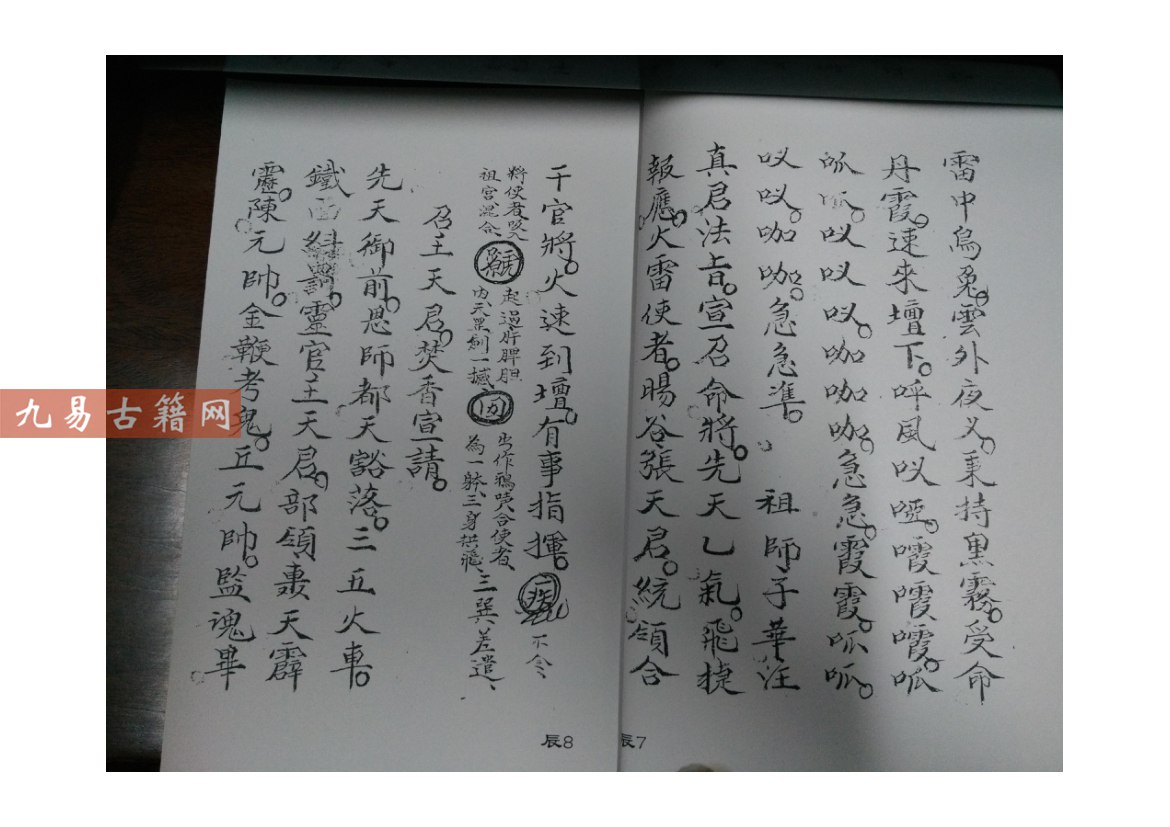 雷中烏兔雲外夜义秉持黑霧受命
丹霞速來壇下呼風㕥啞嚯嚯嚯呱
呱呱㕥㕥㕥咖咖咖急急霞霞呱呱
㕥㕥咖咖急急準 祖師子華汪
真君法旨宣召命將先天乙氣飛捷
報應火雷使者暘谷張天君統領合
千官將火速到壇有事指揮
不令
將使者
祖宮混合
起過肝脾胆
出作鴉
合使者
為一
三身
三巽差遣
召王天君焚香宣請
先天御前恩師都天豁落三五火車
鐵面糾罰靈官王天君部領轟天霹
靂陳元帥金鞭考鬼丘元帥監魂畢
辰7
辰8
九易古籍网